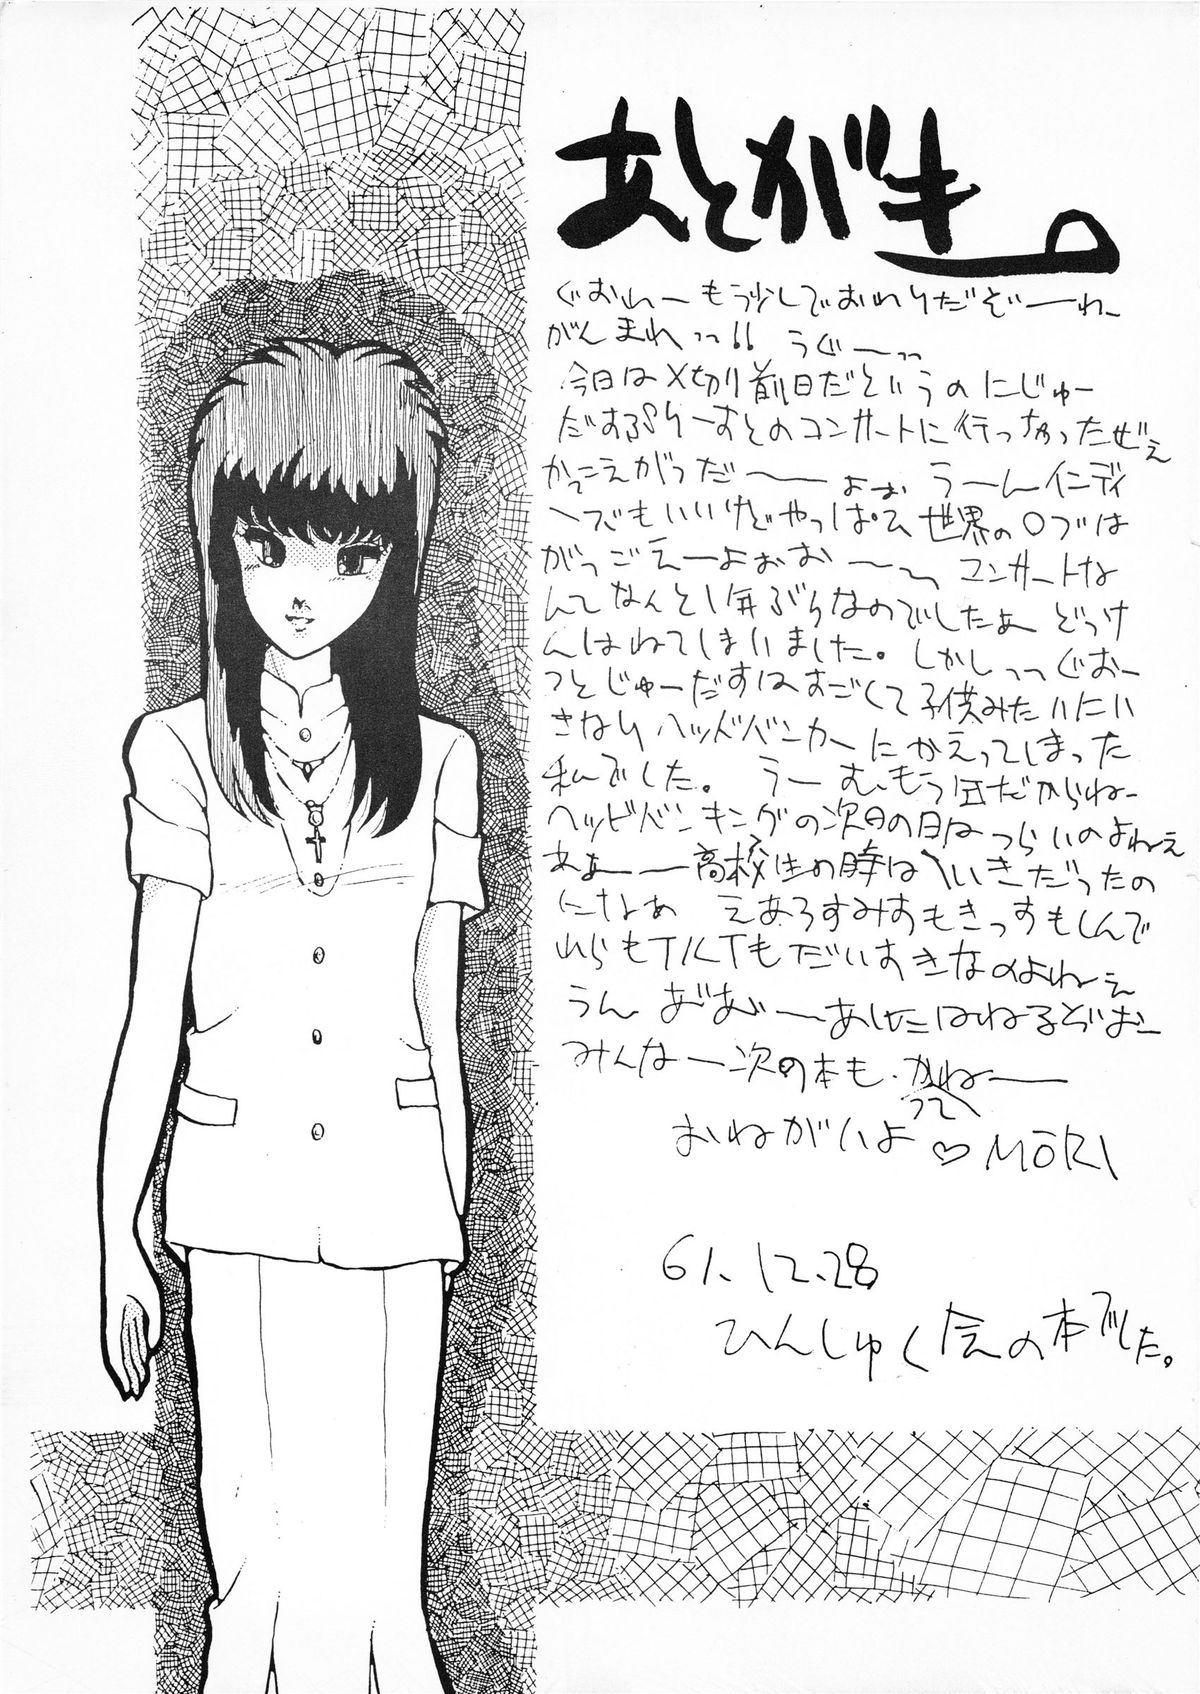 あとがき。
ぐおわーもう少しでおわりだぞーーわ
がんまれっっ!! うぐーーっっ
今日は〆切り前日だというのにじゅー
だすぷりーすとのコンサートに行っちゃったぜぇ
かっこえがっだ〜〜ょぉぉ うーんインディ
ーズでもいいけどやっぱっ世界のロブは
がっごえーーよぉぉお〜〜っ コンサートな
んてなんと1年ぶりなのでしたぁ どっけ
んはねてしまいました。しかしっっぐおー
っとじゅーだすはすごくて子供みたいにい
きなりヘッドバンカーにかえってしまった
私でした。 うーむ、もう年だからね-
ヘッドバンキングの次の日はつらいのよねぇ
あぁーー高校生の時はへいきだったの
になぁ えあろすみすもきっすもしんで
れらもTILTもだいすきなのよねぇ
うん おおーーあしたはねるぞぉー
みんなー次の本も、かってねーー
おねがいよ♡MORI
61.12.28
ひんしゅく会の本でした。